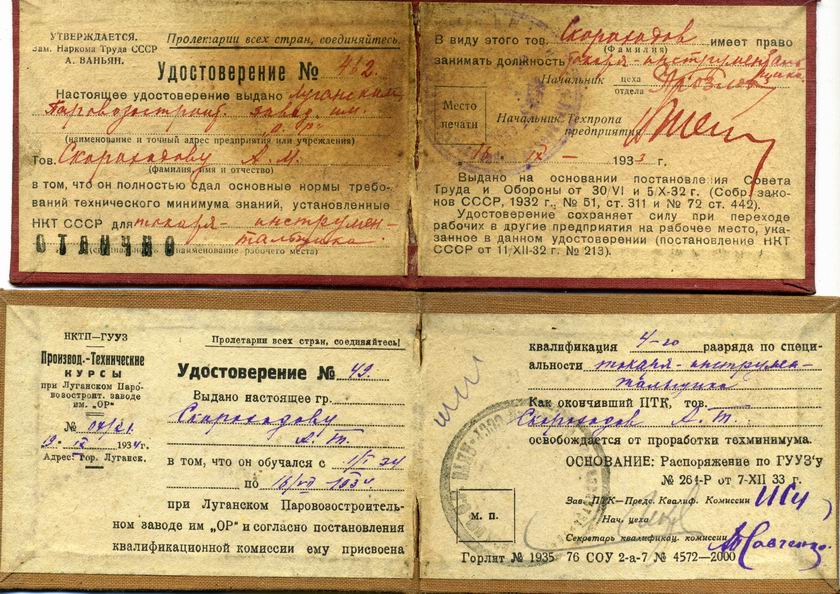 УТВЕРЖДАЕТСЯ.
Зам. Наркома Труда СССР
А. ВАНЬЯН.
Пролетарии всех стран, соединяйтесь.
Удостоверение № 412.
Настоящее удостоверение выдано Луганским
Паровозостроит. завод. им.
"О.Р."
(наименование и точный адрес предприятия или учреждения)
Тов. Скороходову А. М.
(фамилия, имя и отчество)
в том, что он полностью сдал основные нормы требо-
ваний технического минимума знаний, установленные
НКТ СССР для токаря-инструмен-
тальщика.
ОТЛИЧНО
(специальность, наименование рабочего места)
В виду этого тов. Скороходов имеет право
(Фамилия)
занимать должность токаря-инструменталь
щика
Начальник цеха
отдела
Место
печати
Начальник Техпропа
предприятия
16 IX — 1933 г.
Выдано на основании постановления Совета
Труда и Обороны от 30/VI и 5/X-32 г. (Собр. зако-
нов СССР, 1932 г., № 51, ст. 311 и № 72 ст. 442).
Удостоверение сохраняет силу при переходе
рабочих в другие предприятия на рабочее место, ука-
занное в данном удостоверении (постановление НКТ
СССР от 11-XII-32 г. № 213).
НКТП—ГУУЗ
Производ.-Технические
КУРСЫ
при Луганском Паро-
возостроит. заводе
им. „ОР"
№
1934г.
Адрес: гор. Луганск.
Пролетарии всех стран, соединяйтесь!
Удостоверение № 49.
Выдано настоящее гр.
Скороходову
А. Т.
в том, что он обучался с 1/I 34
по 16/VII 1934
при Луганском Парововостроитель-
ном заводе им „ОР" и согласно постановления
квалификационной комиссии ему присвоена
квалификация 4-го разряда по специ-
альности токаря-инструмен-
тальщика
Как окончивший ПТК, тов.
Скороходов А. Т.
освобождается от проработки техминимума.
ОСНОВАНИЕ: Распоряжение по ГУУЗ'у
№ 264-Р от 7-XII 33 г.
Зав. ПТК—Предс. Квалиф. Комиссии
Нач. цеха
М. П.
Секретарь квалификац. комиссии Савченко
Горлит № 1935 76 СОУ 2-а-7 № 4572—2000